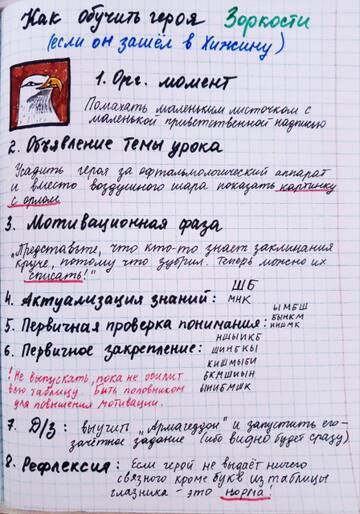 Как обучить героя Зоркости
(если он зашёл в Хижину)
1. Орг. момент
Помахать маленьким листочком с
маленькой приветственной надписью
2. Объявление темы урока
Усадить героя за офтальмологический аппарат
и вместо воздушного шара показать картинку
с орлом.
3. Мотивационная фаза
„Представьте, что кто-то знает заклинания
круче, потому что зубрил. Теперь можно их
списать!"
ШБ
4. Актуализация знаний: МНК
ЫМБШ
5. Первичная проверка понимания: БЫНКМ
ИНШМК
6. Первичное закрепление: НШЫИКБ
ШИНБКЫ
КНШМЫБИ
БКМШИЫН
ЫНИБМШК
! Не выпускать, пока не осилит
всю таблицу. Быть половником
для повышения мотивации.
7. Д/З: выучить „Армагеддон" и запустить его-
зачётное задание (ибо видно будет сразу)
8. Рефлексия: Если герой не выдаёт ничего
связного кроме букв из таблицы
глазника – это норма!